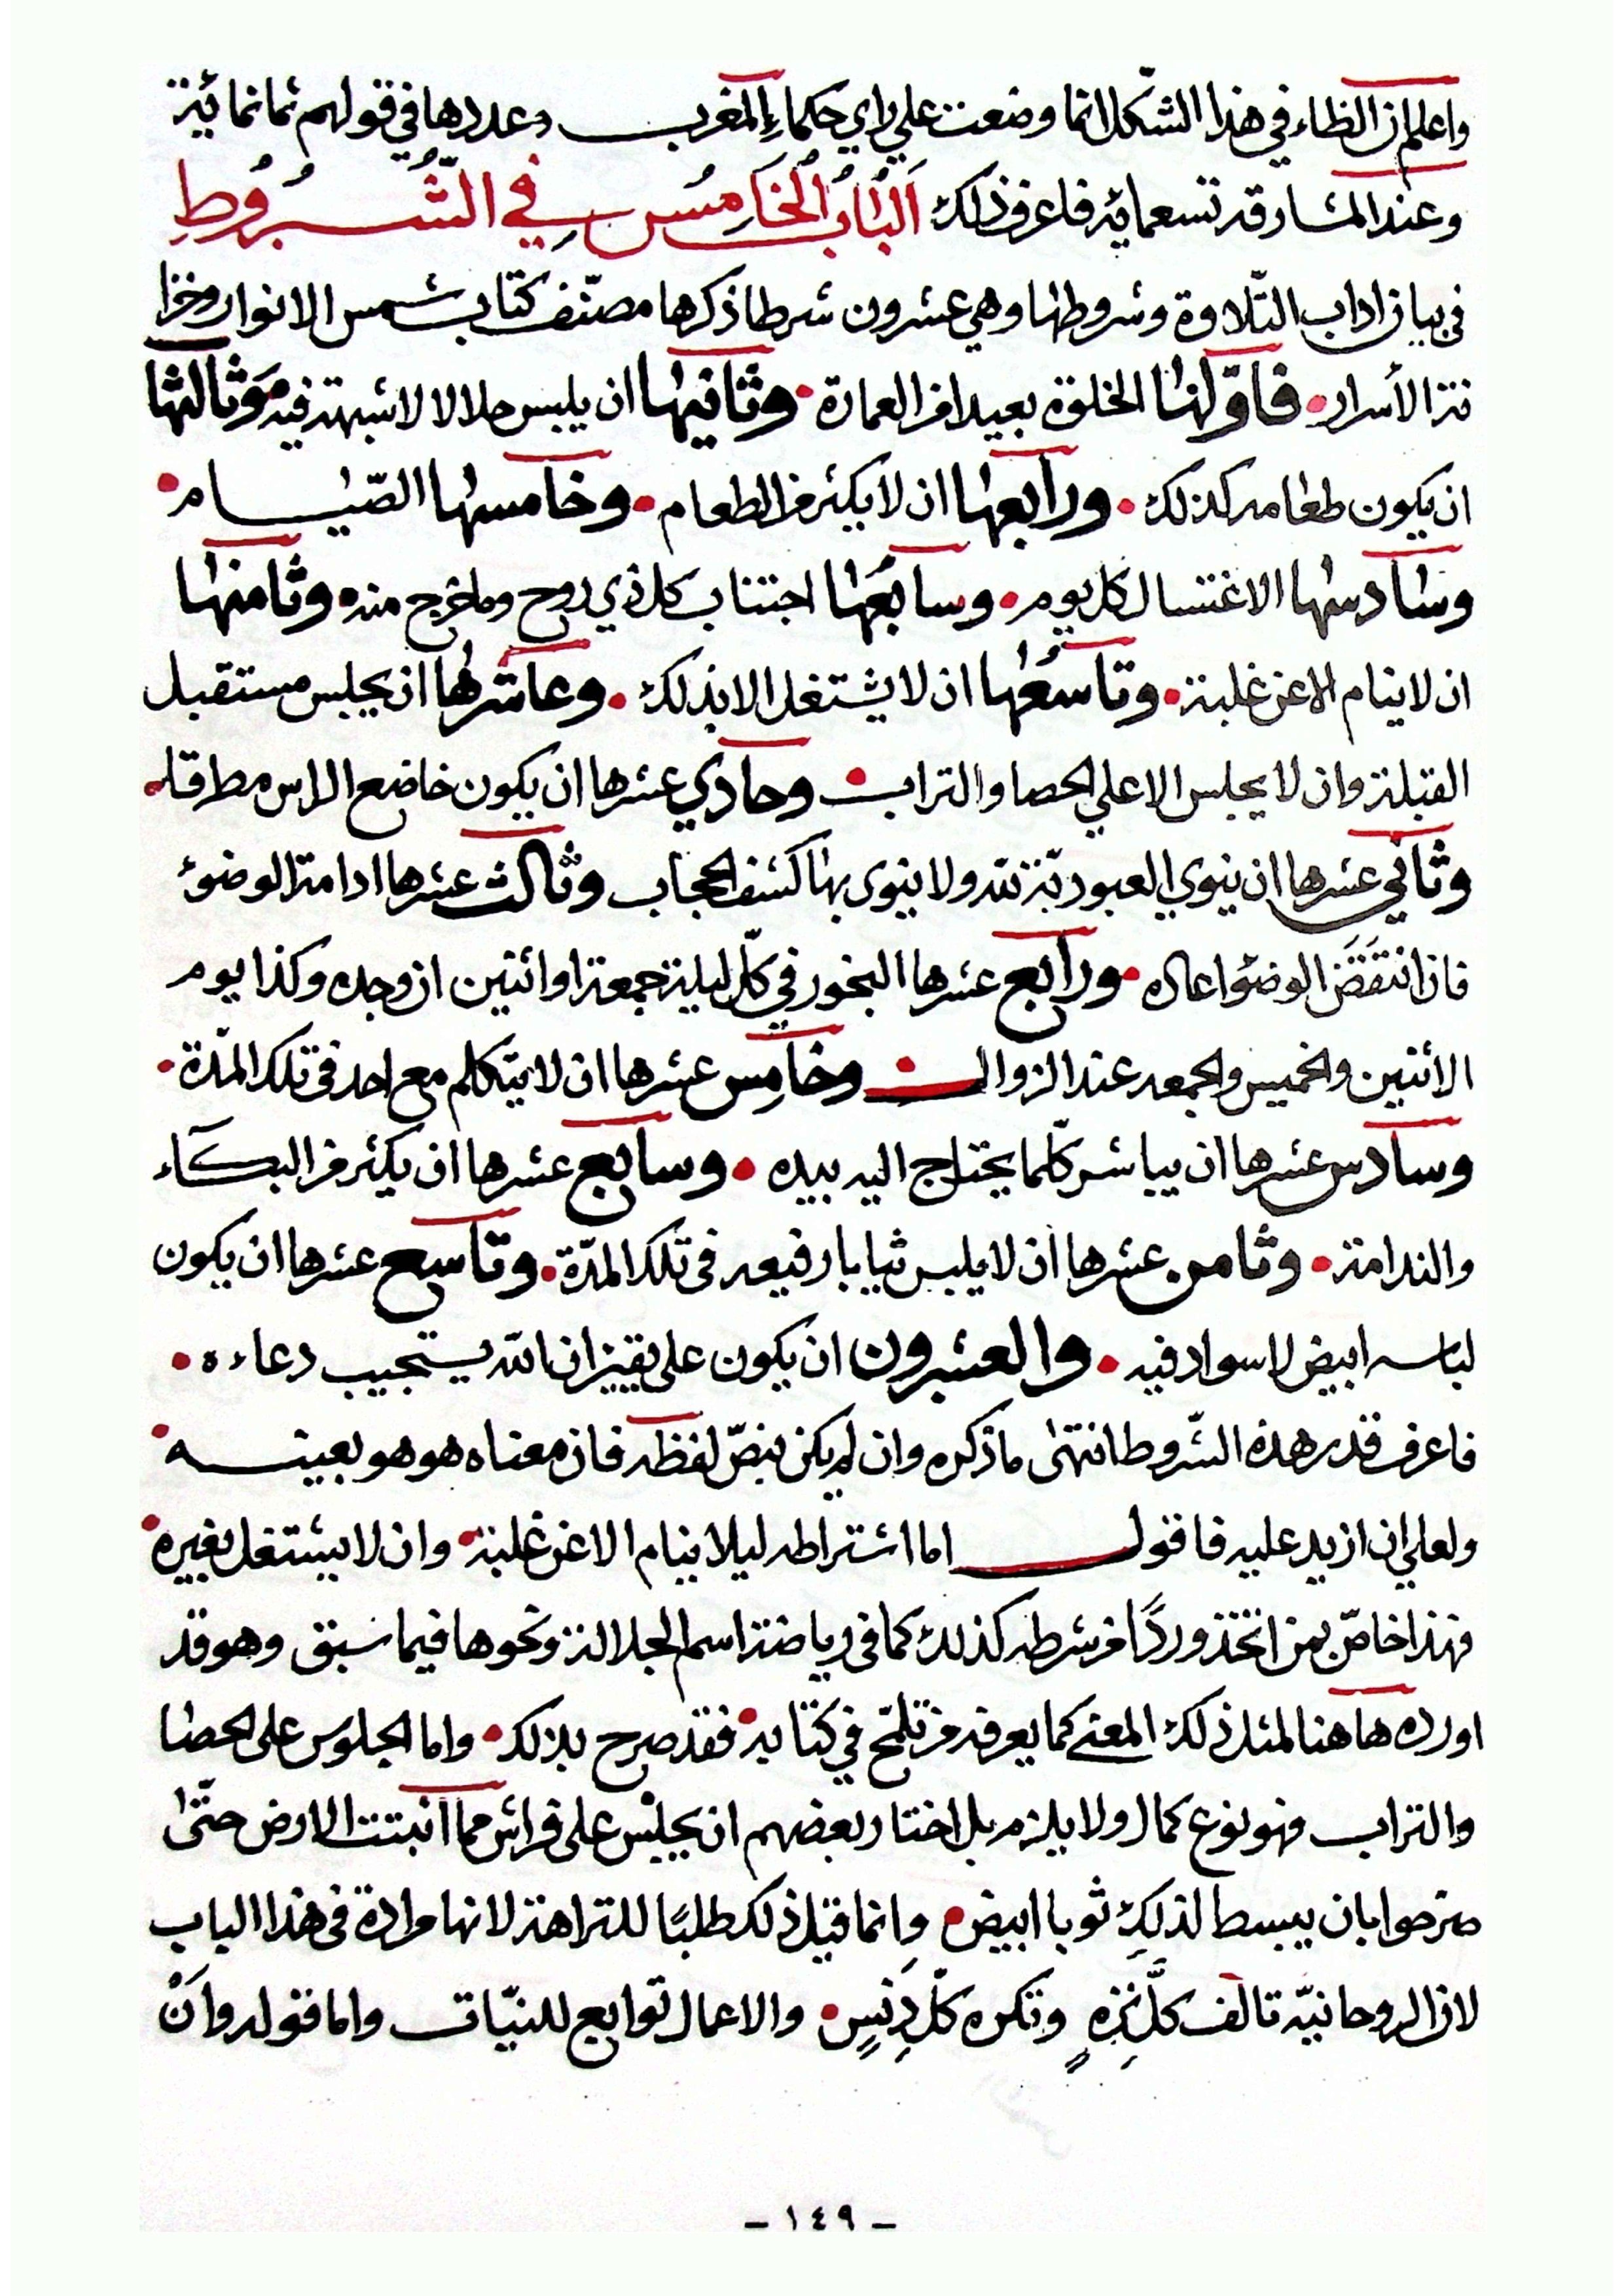 واعلم ان الظاء في هذا الشكل انما وضعت علي راي حكماء المغرب وعددها في قولهم ثمانمائة
وعند المشارقة تسعماية فاعرف ذلك اَلْبَابُ الْخَامِسُ فِي الشُّرُوطِ
في بيان اداب التّلاوة وشروطها وهي عشرون شرطا ذكرها مصنّف كتاب شمس الانوار وخزا
نة الأسرار • فاوّلها الخلوة بعيدا من العمارة • وثانيها ان يلبس حلالا لا شبهة فيه • وثالثها
ان يكون طعامه كذلك • ورابعها ان لا يكثر من الطعام • وخامسها الصّيام •
وسادسها الاغتسال كل يوم • وسابعها اجتناب كل ذي روح وما خرج منه • وثامنها
ان لا ينام الا عن غلبة • وتاسعها ان لا يشتغل الا بذلك • وعاشرها ان يجلس مستقبل
القبلة وان لا يجلس الا علي الحصا والتراب • وحادي عشرها ان يكون خاضع الراس مطرقا •
وثاني عشرها ان ينوي العبوديّة لله ولا ينوى بها كشف الحجاب وثالث عشرها ادامة الوضوء
فان انتَقَضَ الوضؤ اعاده • ورابع عشرها البخور في كلّ ليلة جمعة او اثنين ان وجده وكذا يوم
الأثنين والخميس والجمعه عند الزوال • وخامِس عشرها ان لا يتكلم مع احد في تلك المدّة •
وسادس عشرها ان يباشر كلّما يحتاج اليه بيده • وسابع عشرها ان يكثر من البكآء
والندامة • وثامن عشرها ان لا يلبس ثيابا رفيعه في تلك المدّة • وتاسع عشرها ان يكون
لباسه ابيض لا سواد فيه • والعشرون ان يكون على يقين ان الله يستجيب دعاءه •
فاعرف قدر هذه الشّروط انتهى ما ذكره وان لم يكن بنصّ لفظه فان معناه هو هو بعينه •
ولعلي ان ازيد عليه فاقول اما اشتراطه ليلا ينام الا عن غلبة • وان لا يشتغل بغيره •
فهذا خاصّ بمن اتخذ وردًا من شرطه كذلك كما في رياضة اسم الجلالة ونحوها فيما سبق وهو قد
اورده هاهنا لمثل ذلك المعنى كما يعرفه من تلمّح في كتابه • فقد صرح بذلك • واما الجلوس على الحصا
والتراب فهو نوع كمال ولا يلزم بل اختار بعضهم ان يجلس على فراش مما انبتت الارض حتّى
صرحوا بان يبسط لذلك ثوبا ابيض • وانما قيل ذلك طلبًا للنزاهة لانها مرادة في هذا الباب
لان الروحانيّة تالف كلَّ نَزِهٍ وتكره كلّ دَنِسٍ • والاعمال توابع للنيّات واما قوله وانْ
- ١٤٩ -